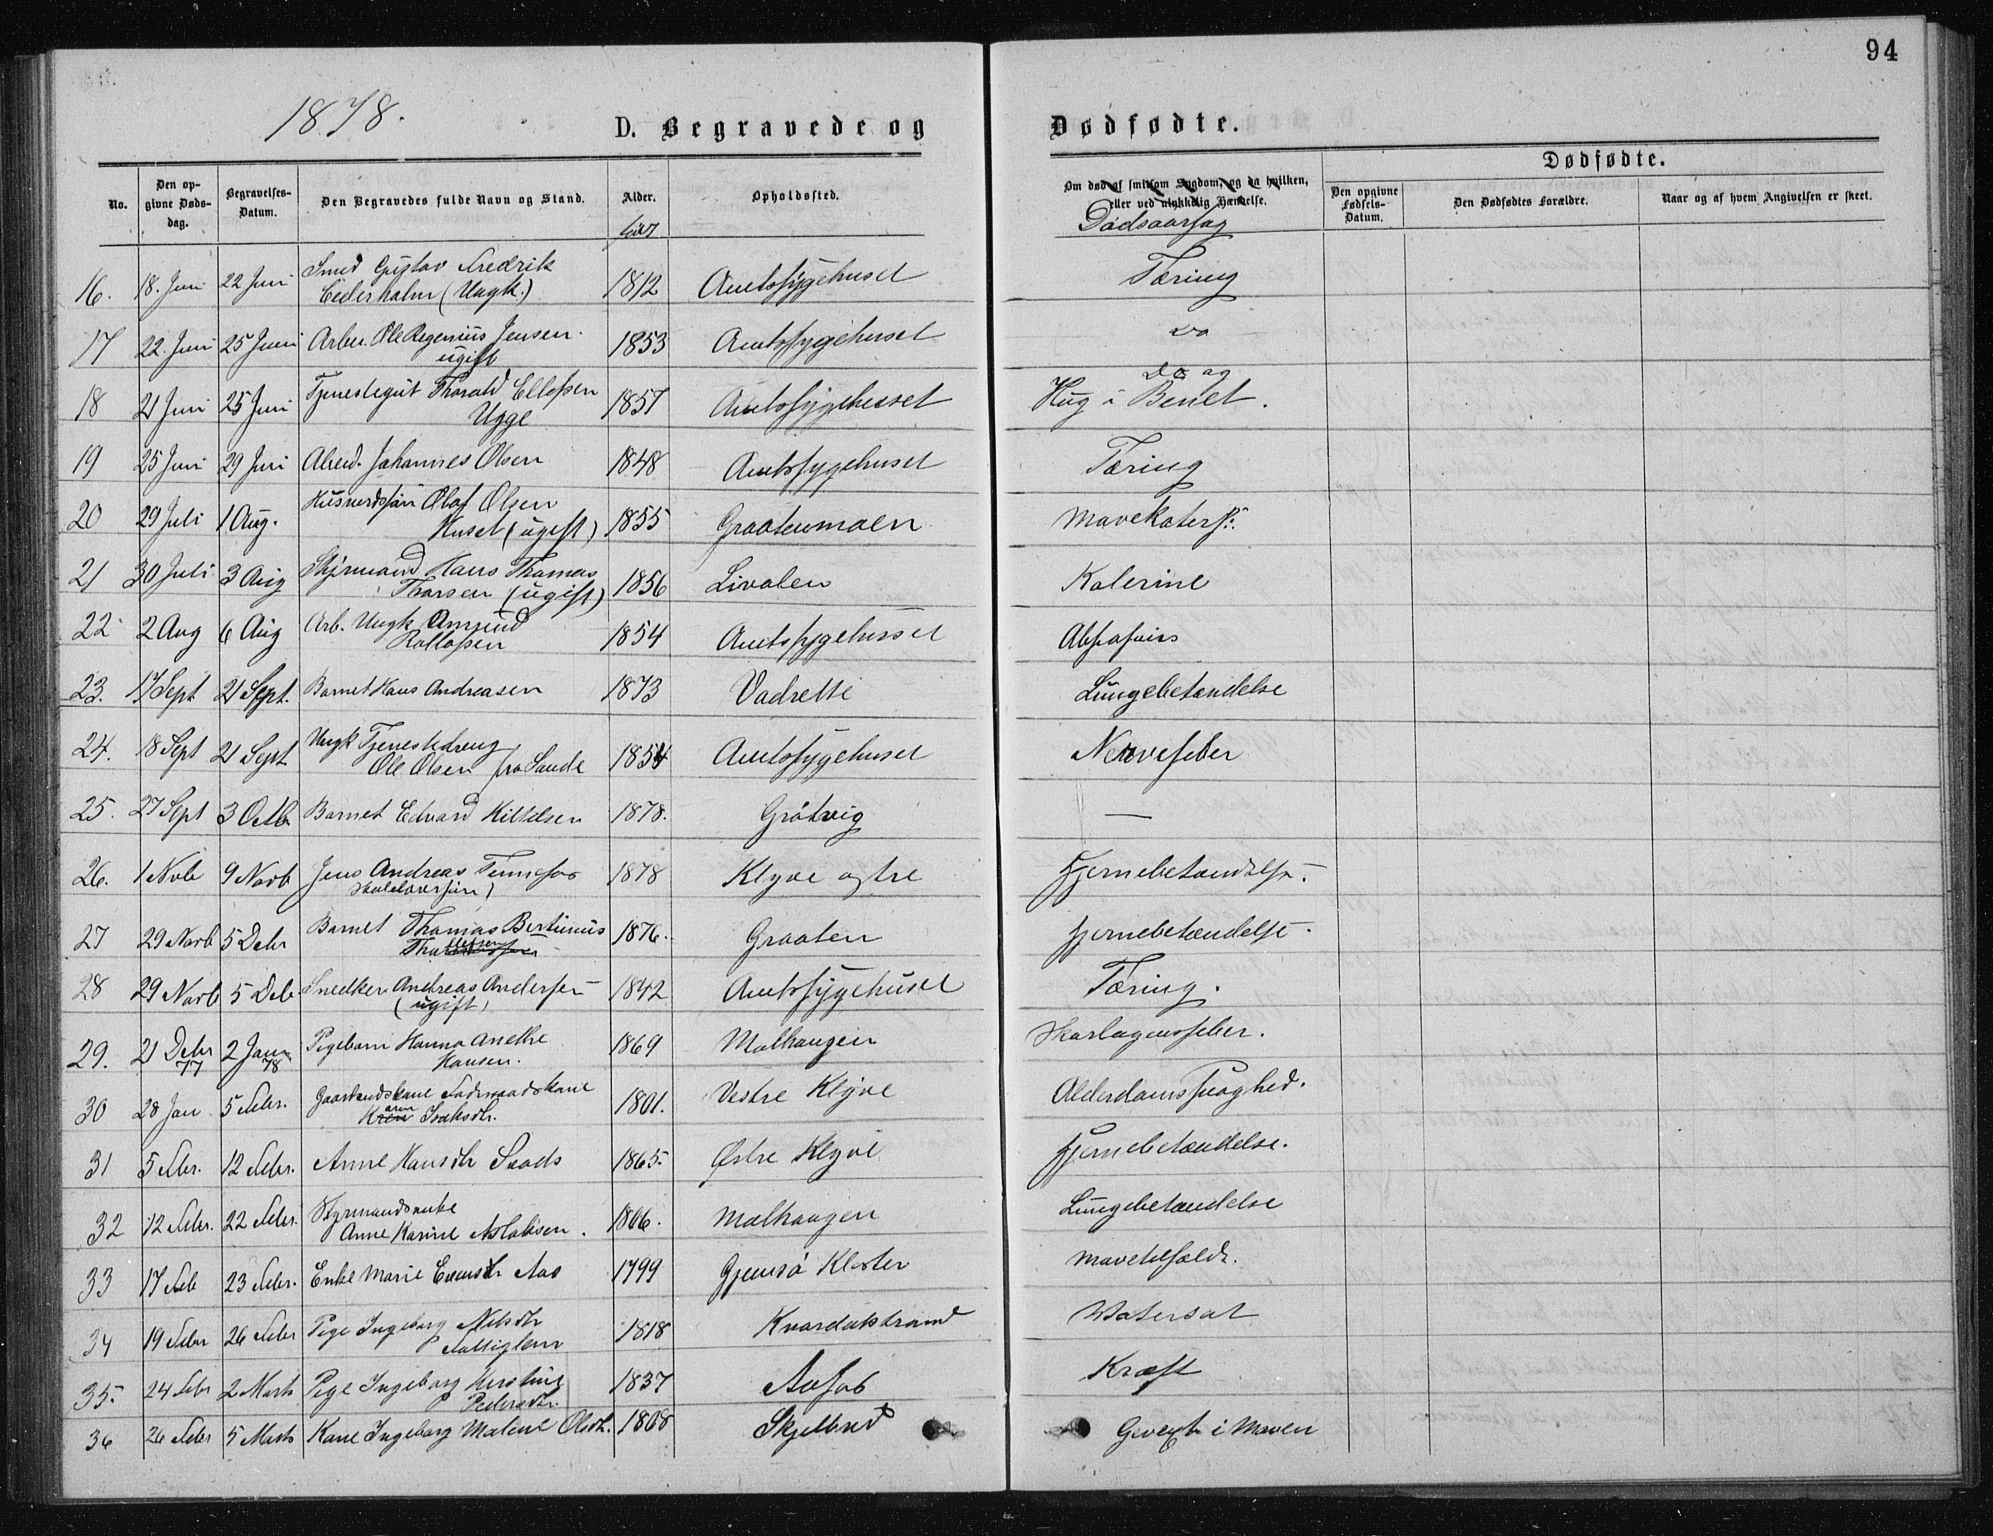 94
1878.
D. Begravede og Dødfødte.
No.
Den opgivne Dødsdag.
Begravelses-Datum.
Den Begravedes fulde Navn og Stand.
Alder.
Opholdssted.
Om død af smitsom Sygdom, og da hvilken, eller ved ulykkelig Hændelse.
Dødsaarsag
Dødfødte.
Den opgivne Fødsels-Datum.
Den Dødfødtes Forældre.
Naar og af hvem Angivelsen er skeet.
16. 18. Juni 22 Juni Smed Gustav Fredrik Cederholm (Ungk.) 1812 Amtssygehuset Tæring
17 22. Juni 25 Juni Arbei. Ole Regenius Jensen. ugift 1853 Amtssygehuset do
18 21 Juni 25 Juni Tjenestegut Thorald Ellefsen Ugge 1857 Amtssygehuset Do og Hug i Benet.
19 25 Juni 29 Juni Johannes Olsen 1848 Amtssygehuset Tæring
20 29 Juli 1 Aug. Olaf Olsen Huset (ugift) 1855 Graatenmoen
21 30 Juli 3 Aug Styrmand Hans Thomas Thorsen (ugift) 1856 Kolerine
22 2 Aug 6 Aug Arb. Ungk Amund Rollefsen 1854 Amtssygehuset
23. 17 Sept 21 Sept. Barnet Hans Andreasen 1873 Vadrette Lungebetændelse
24. 18 Sept 21 Sept Ungk Tjenestedreng Ole Olsen fra Sande 1854 Amtssygehuset Nervefeber
25. 27 Sept 3 Octb Barnet Edvard Kittelsen 1878. Grötvig —
26. 1 Novb 9 Novb Jens Andreas Tinnefos 1878 Klyve østre Hjernebetændelse.
27 29 Novb 5 Debr Barnet Thomas Bertinius 1876. Graaten Hjernebetændelse.
28 29 Novb 5 Deb Snedker Andreas Andersen (ugift) 1842 Amtssygehuset Tæring.
29. 21 Debr 77 2 Jan 78 Pigebarn Hanna Anethe Hansen. 1869 Molhaugen Skarlagensfeber.
30 28 Jan 5 Febr. Karen Isaksdtr. 1801. Vestre Klyve Alderdomssvaghed.
31 5 Febr. 12 Febr. Anne Hansdtr Saods 1865. Østre Klyve Hjernebetændelse.
32 12 Febr. 22 Febr. Styrmandsenke Anne Karine Aslaksen. 1806. Molhaugen Lungebetændelse
33 17 Feb 23 Febr. Enke Marie Evensdtr Aas 1799 Gjemsö Kloster
34 19 Febr 26 Febr Pige Ingeborg Nilsdtr Fattiglem 1818 Watersot
35. 24 Febr 2 Marts Pige Ingeborg Kirstine Pedersdtr. 1837 Kræft
36 26 Febr 5 Marts Kone Ingeborg Malene Olsdtr. 1808 Skjelbred Gvext i Maven